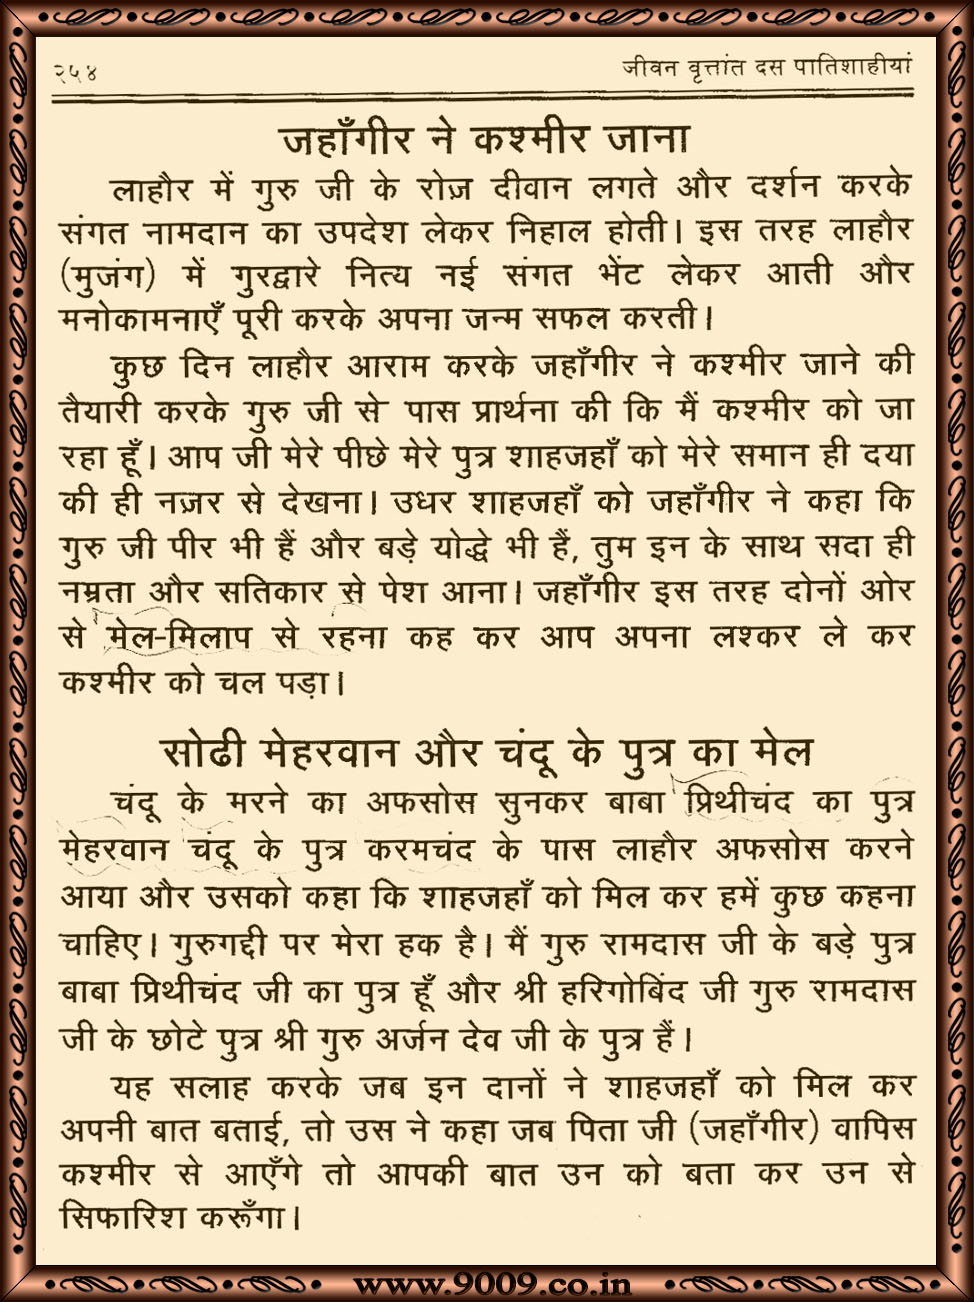 २५४
जीवन वृत्तांत दस पातिशाहीयां
जहाँगीर ने कश्मीर जाना
लाहौर में गुरु जी के रोज़ दीवान लगते और दर्शन करके
संगत नामदान का उपदेश लेकर निहाल होती। इस तरह लाहौर
(मुजंग) में गुरद्वारे नित्य नई संगत भेंट लेकर आती और
मनोकामनाएँ पूरी करके अपना जन्म सफल करती।
कुछ दिन लाहौर आराम करके जहाँगीर ने कश्मीर जाने की
तैयारी करके गुरु जी से पास प्रार्थना की कि मैं कश्मीर को जा
रहा हूँ। आप जी मेरे पीछे मेरे पुत्र शाहजहाँ को मेरे समान ही दया
की ही नज़र से देखना। उधर शाहजहाँ को जहाँगीर ने कहा कि
गुरु जी पीर भी हैं और बड़े योद्धे भी हैं, तुम इन के साथ सदा ही
नम्रता और सतिकार से पेश आना। जहाँगीर इस तरह दोनों ओर
से मेल-मिलाप से रहना कह कर आप अपना लश्कर ले कर
कश्मीर को चल पड़ा।
सोढी मेहरवान और चंदू के पुत्र का मेल
चंदू के मरने का अफसोस सुनकर बाबा प्रिथीचंद का पुत्र
मेहरवान चंदू के पुत्र करमचंद के पास लाहौर अफसोस करने
आया और उसको कहा कि शाहजहाँ को मिल कर हमें कुछ कहना
चाहिए। गुरुगद्दी पर मेरा हक है। मैं गुरु रामदास जी के बड़े पुत्र
बाबा प्रिथीचंद जी का पुत्र हूँ और श्री हरिगोबिंद जी गुरु रामदास
जी के छोटे पुत्र श्री गुरु अर्जन देव जी के पुत्र हैं।
यह सलाह करके जब इन दानों ने शाहजहाँ को मिल कर
अपनी बात बताई, तो उस ने कहा जब पिता जी (जहाँगीर) वापिस
कश्मीर से आएँगे तो आपकी बात उन को बता कर उन से
सिफारिश करूँगा।
www.9009.co.in